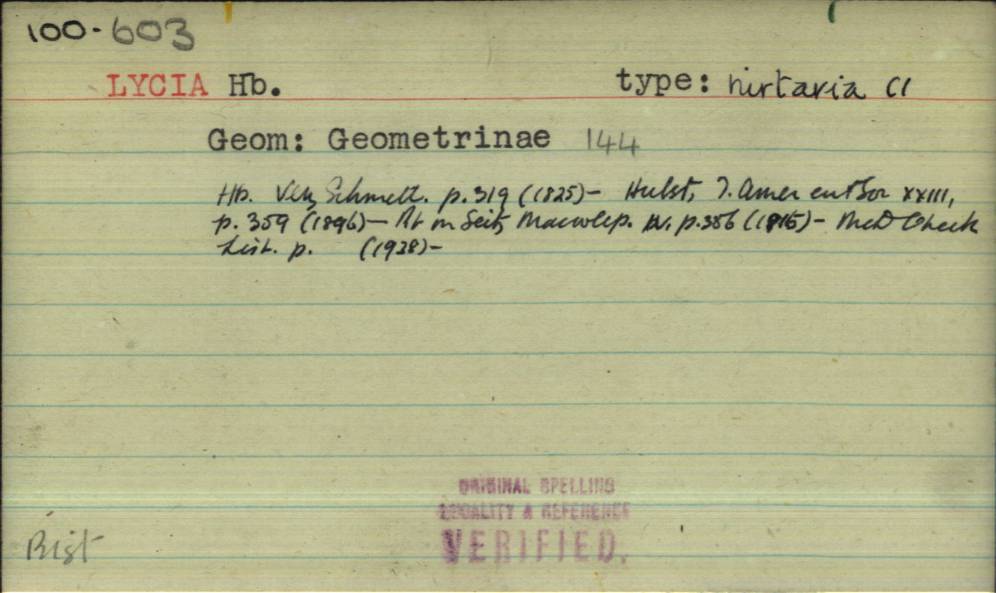 100-603
LYCIA Hb. type: hirtaria Cl
Geom: Geometrinae 144
Hb. Verz Schmett. p.319 (1825)- Hulst, T. Amer ent Soc XXIII,
p. 359 (1896)- in Seitz Macrolep. IV. p.356 (1915)- McD Check
List. p. (1938)-
ORIGINAL SPELLING
LOCALITY & REFERENCE
VERIFIED.
Bist